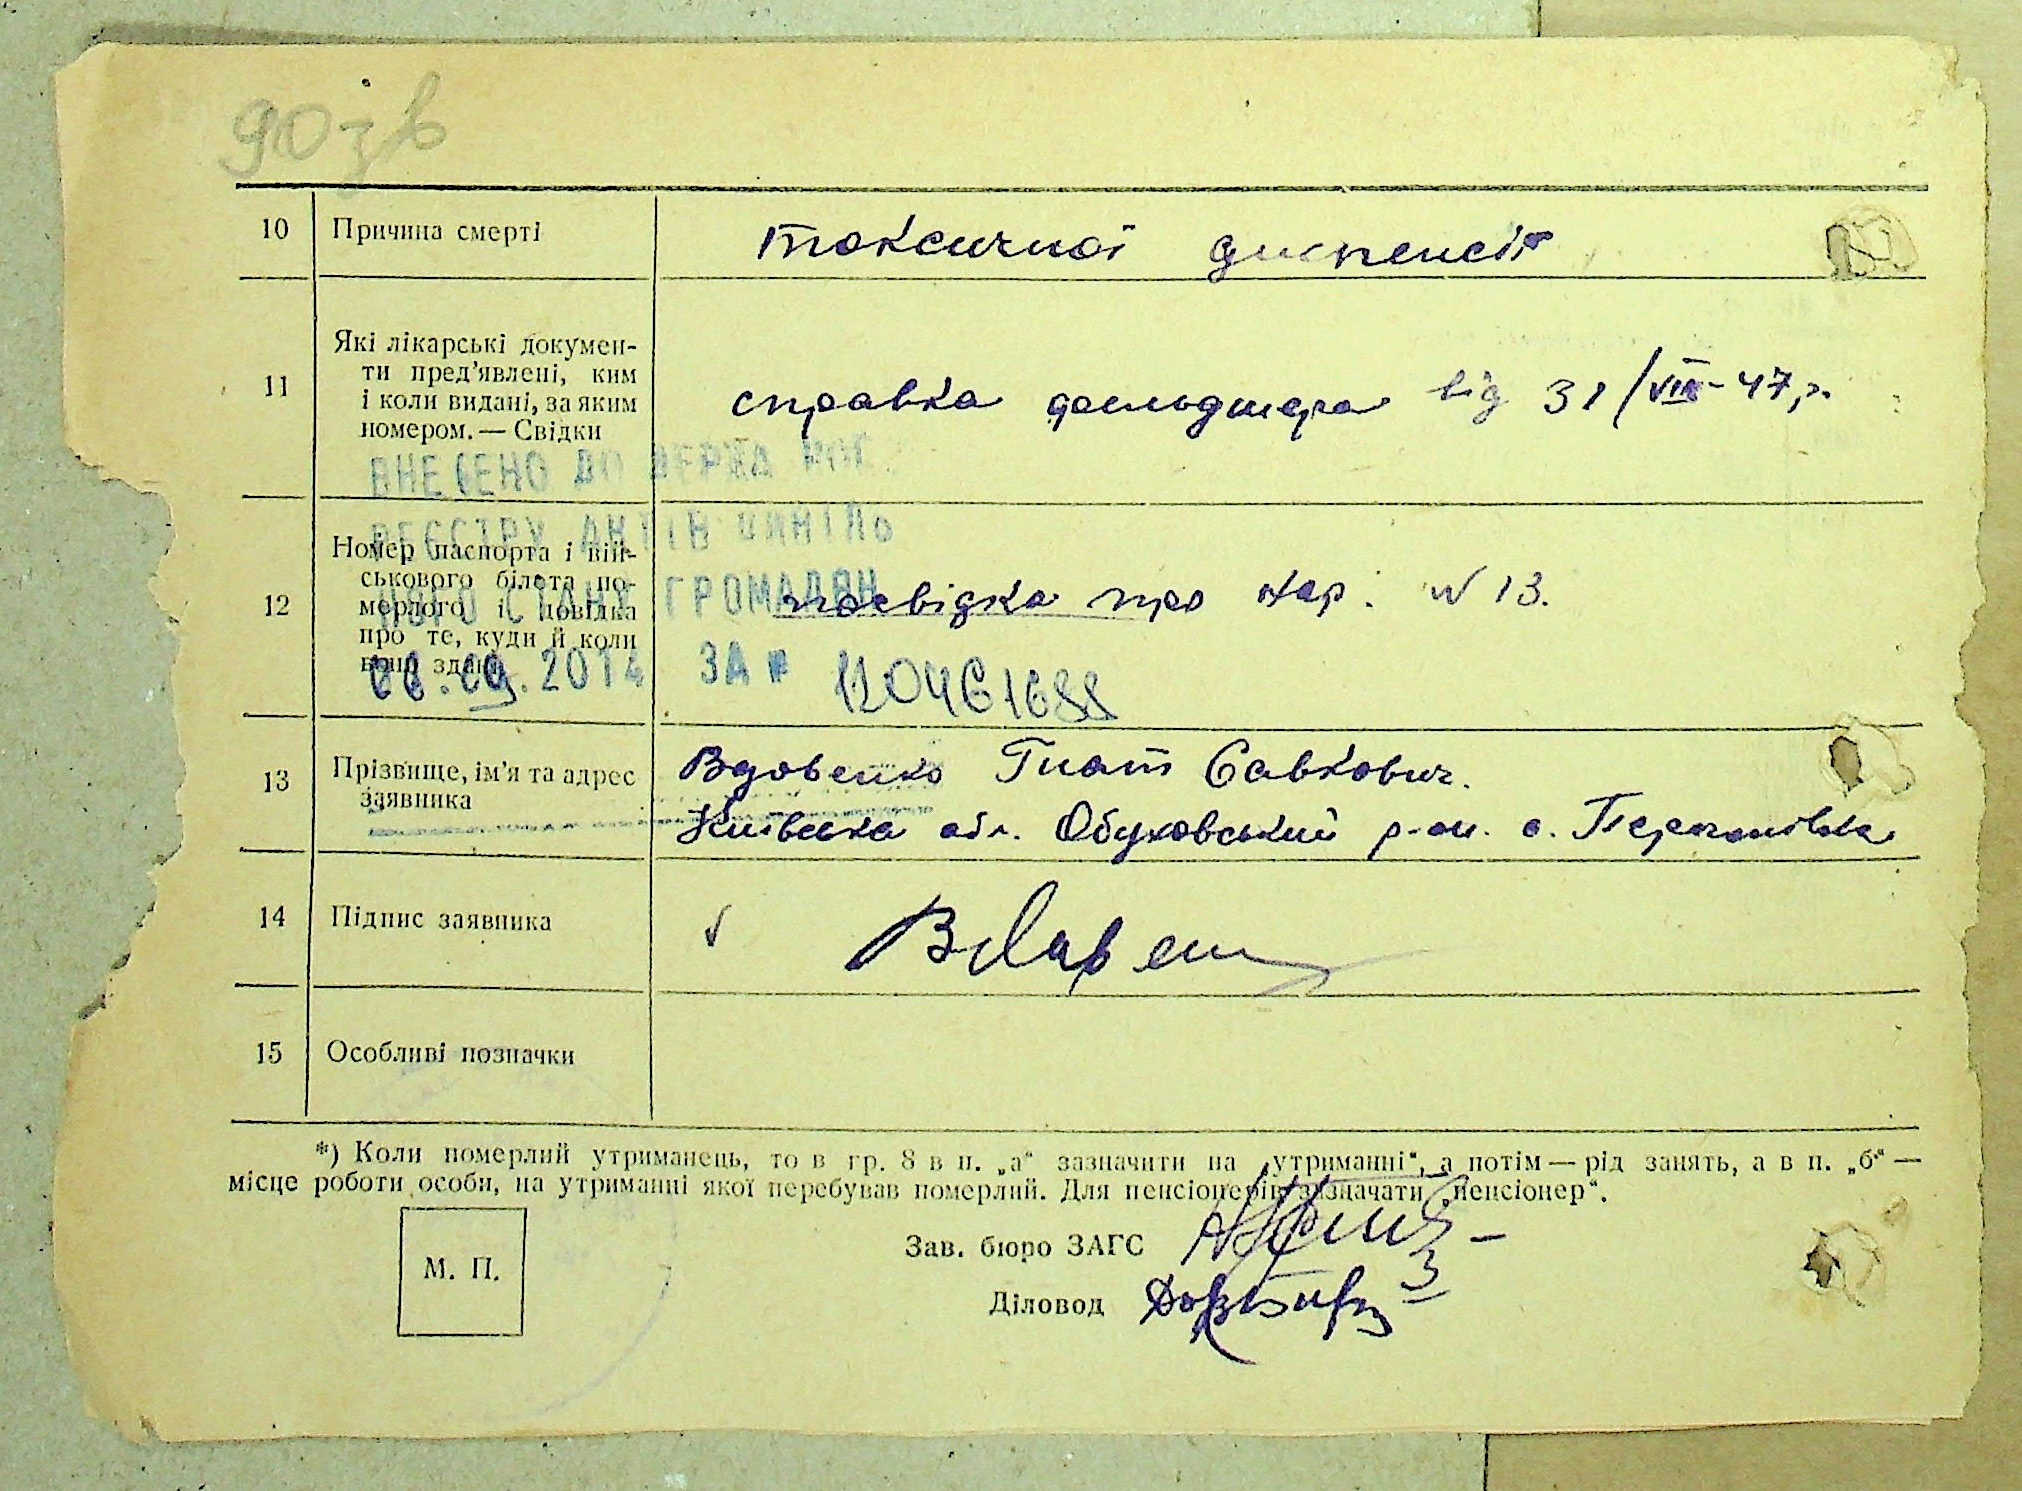 90зв
10 Причина смерті токсичної диспенсія
11 Які лікарські докумен-
ти пред'явлені, ким
і коли видані, за яким
номером. — Свідки
справка фельдшера від 31/VIII-47 р.
ВНЕСЕНО ДО ДЕРЖА
РЕЄСТРУ АКТІВ ЦИВІЛЬ
НОГО СТАНУ ГРОМАДЯН
2014 ЗА № 120461688
12 Номер паспорта і вій-
ськового білета по-
мерлого і довідка
про те, куди й коли
вони здані
посвідка про нар. N 13.
13 Прізвище, ім'я та адрес
заявника
Вдовенко Гнат Савкович.
Київська обл. Обуховський р-он. с.
14 Підпис заявника
15 Особливі позначки
*) Коли померлий утриманець, то в гр. 8 в п. „а“ зазначити на „утриманні“, а потім — рід занять, а в п. „б“ —
місце роботи особи, на утриманні якої перебував померлий. Для пенсіонерів зазначати „пенсіонер“.
М. П.
Зав. бюро ЗАГС
Діловод